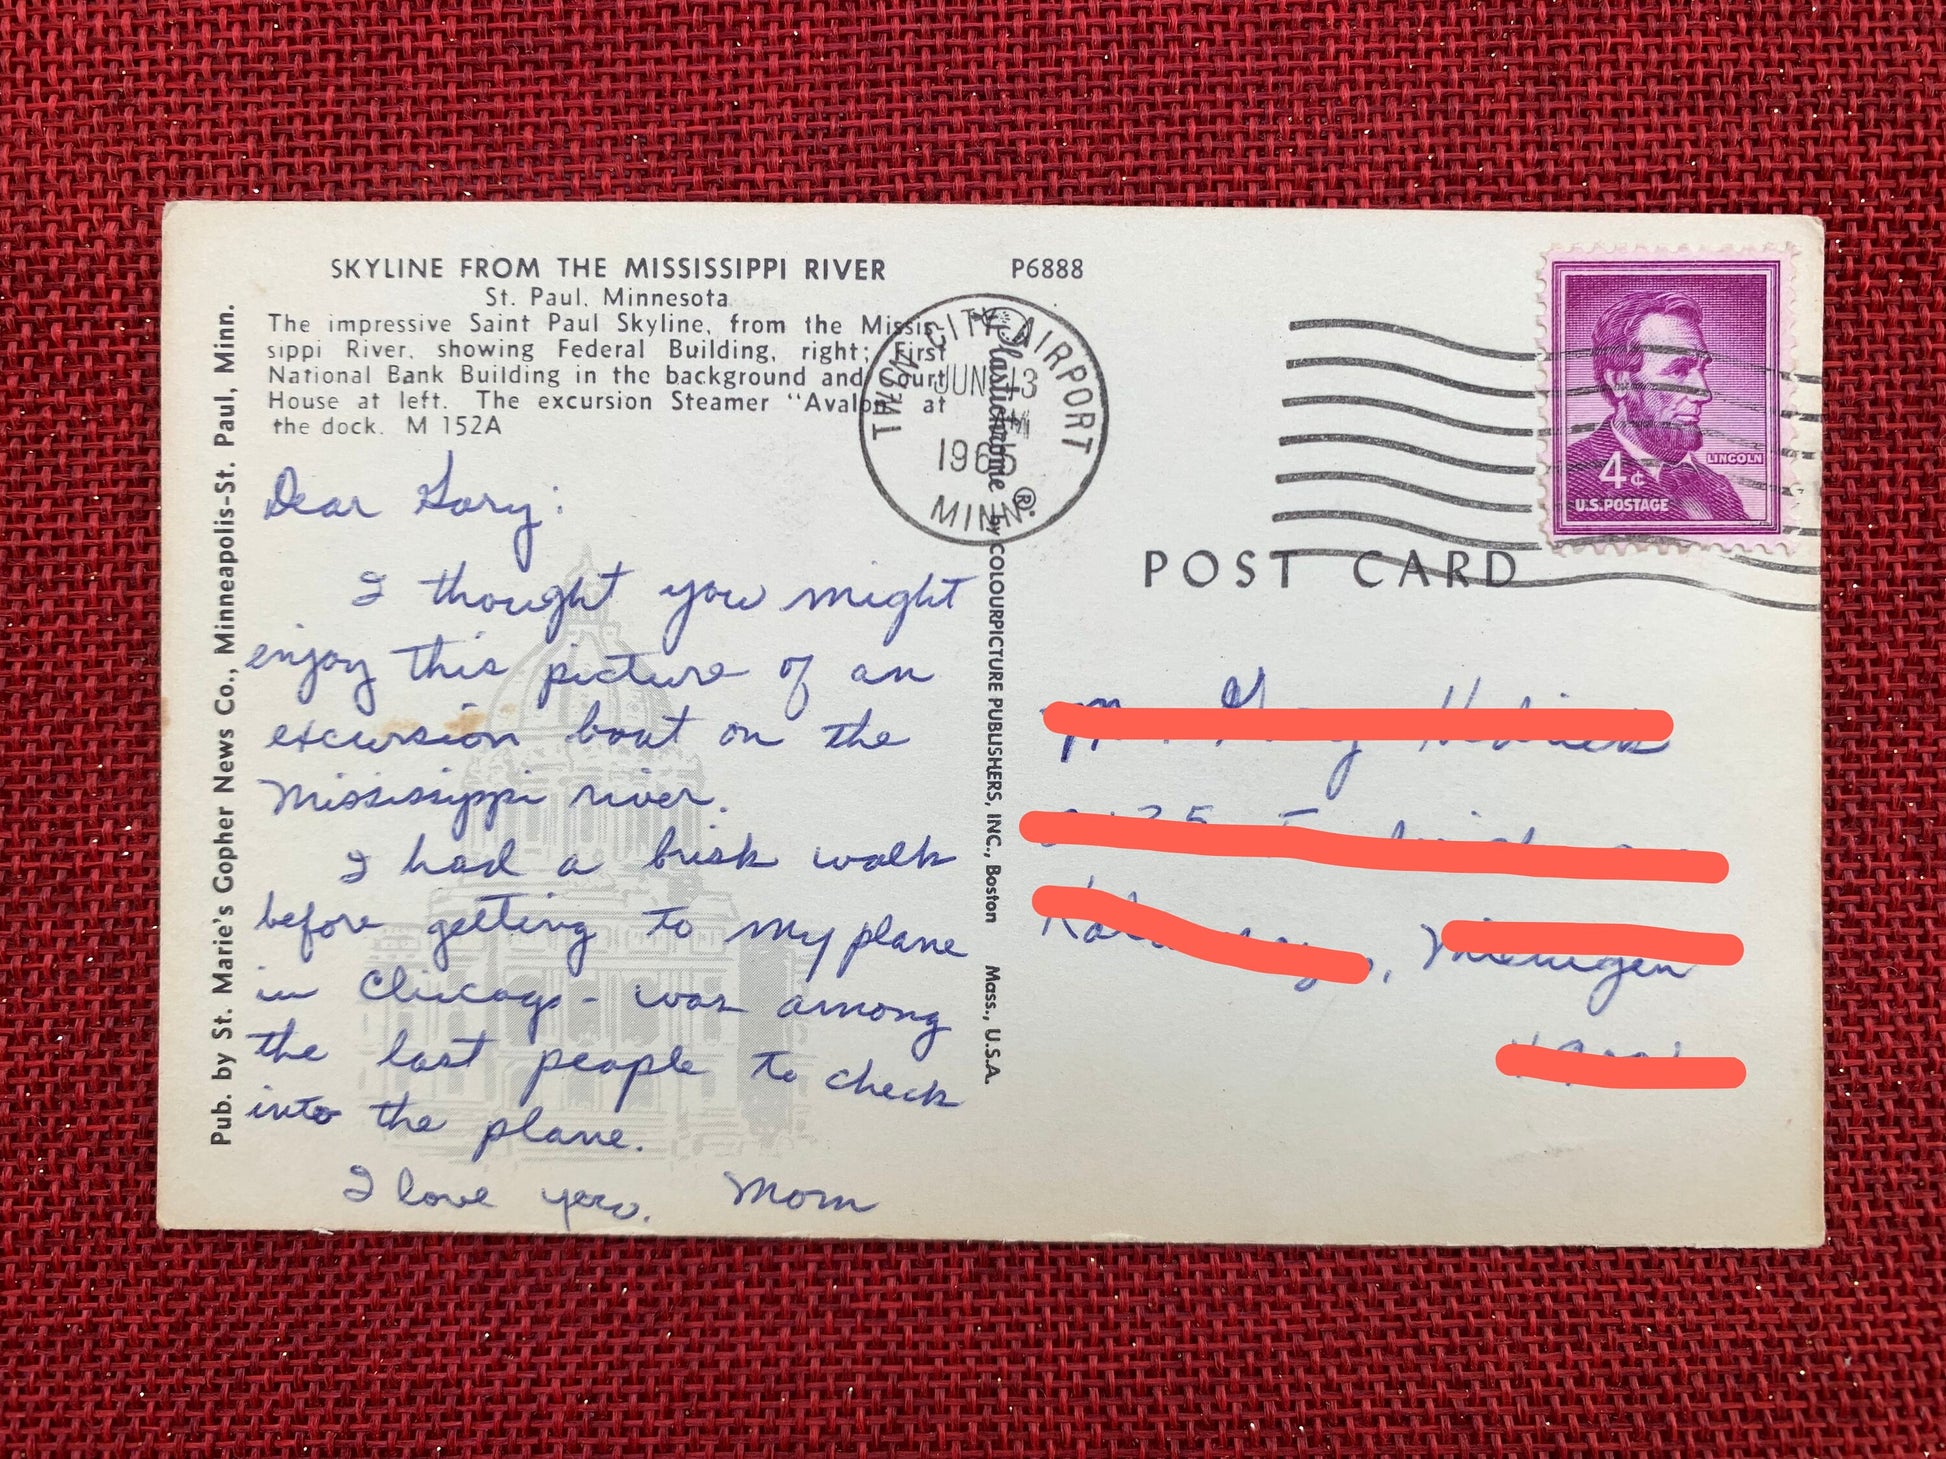 SKYLINE FROM THE MISSISSIPPI RIVER
P6888
St. Paul, Minnesota
The impressive Saint Paul Skyline, from the Missis-
sippi River, showing Federal Building, right; First
National Bank Building in the background and Court
House at left. The excursion Steamer "Avalon" at
the dock. M 152A
Pub. by St. Marie's Gopher News Co., Minneapolis-St. Paul, Minn.
Dear Gary:
I thought you might
enjoy this picture of an
excursion boat on the
Mississippi river.
I had a brisk walk
before getting to my plane
in Chicago - was among
the last people to check
into the plane.
I love you. Mom
Plastichrome ® by COLOURPICTURE PUBLISHERS, INC., Boston Mass., U.S.A.
TWIN CITY AIRPORT
JUN 13
PM
MINN.
LINCOLN
4¢
U.S. POSTAGE
POST CARD
Michigan